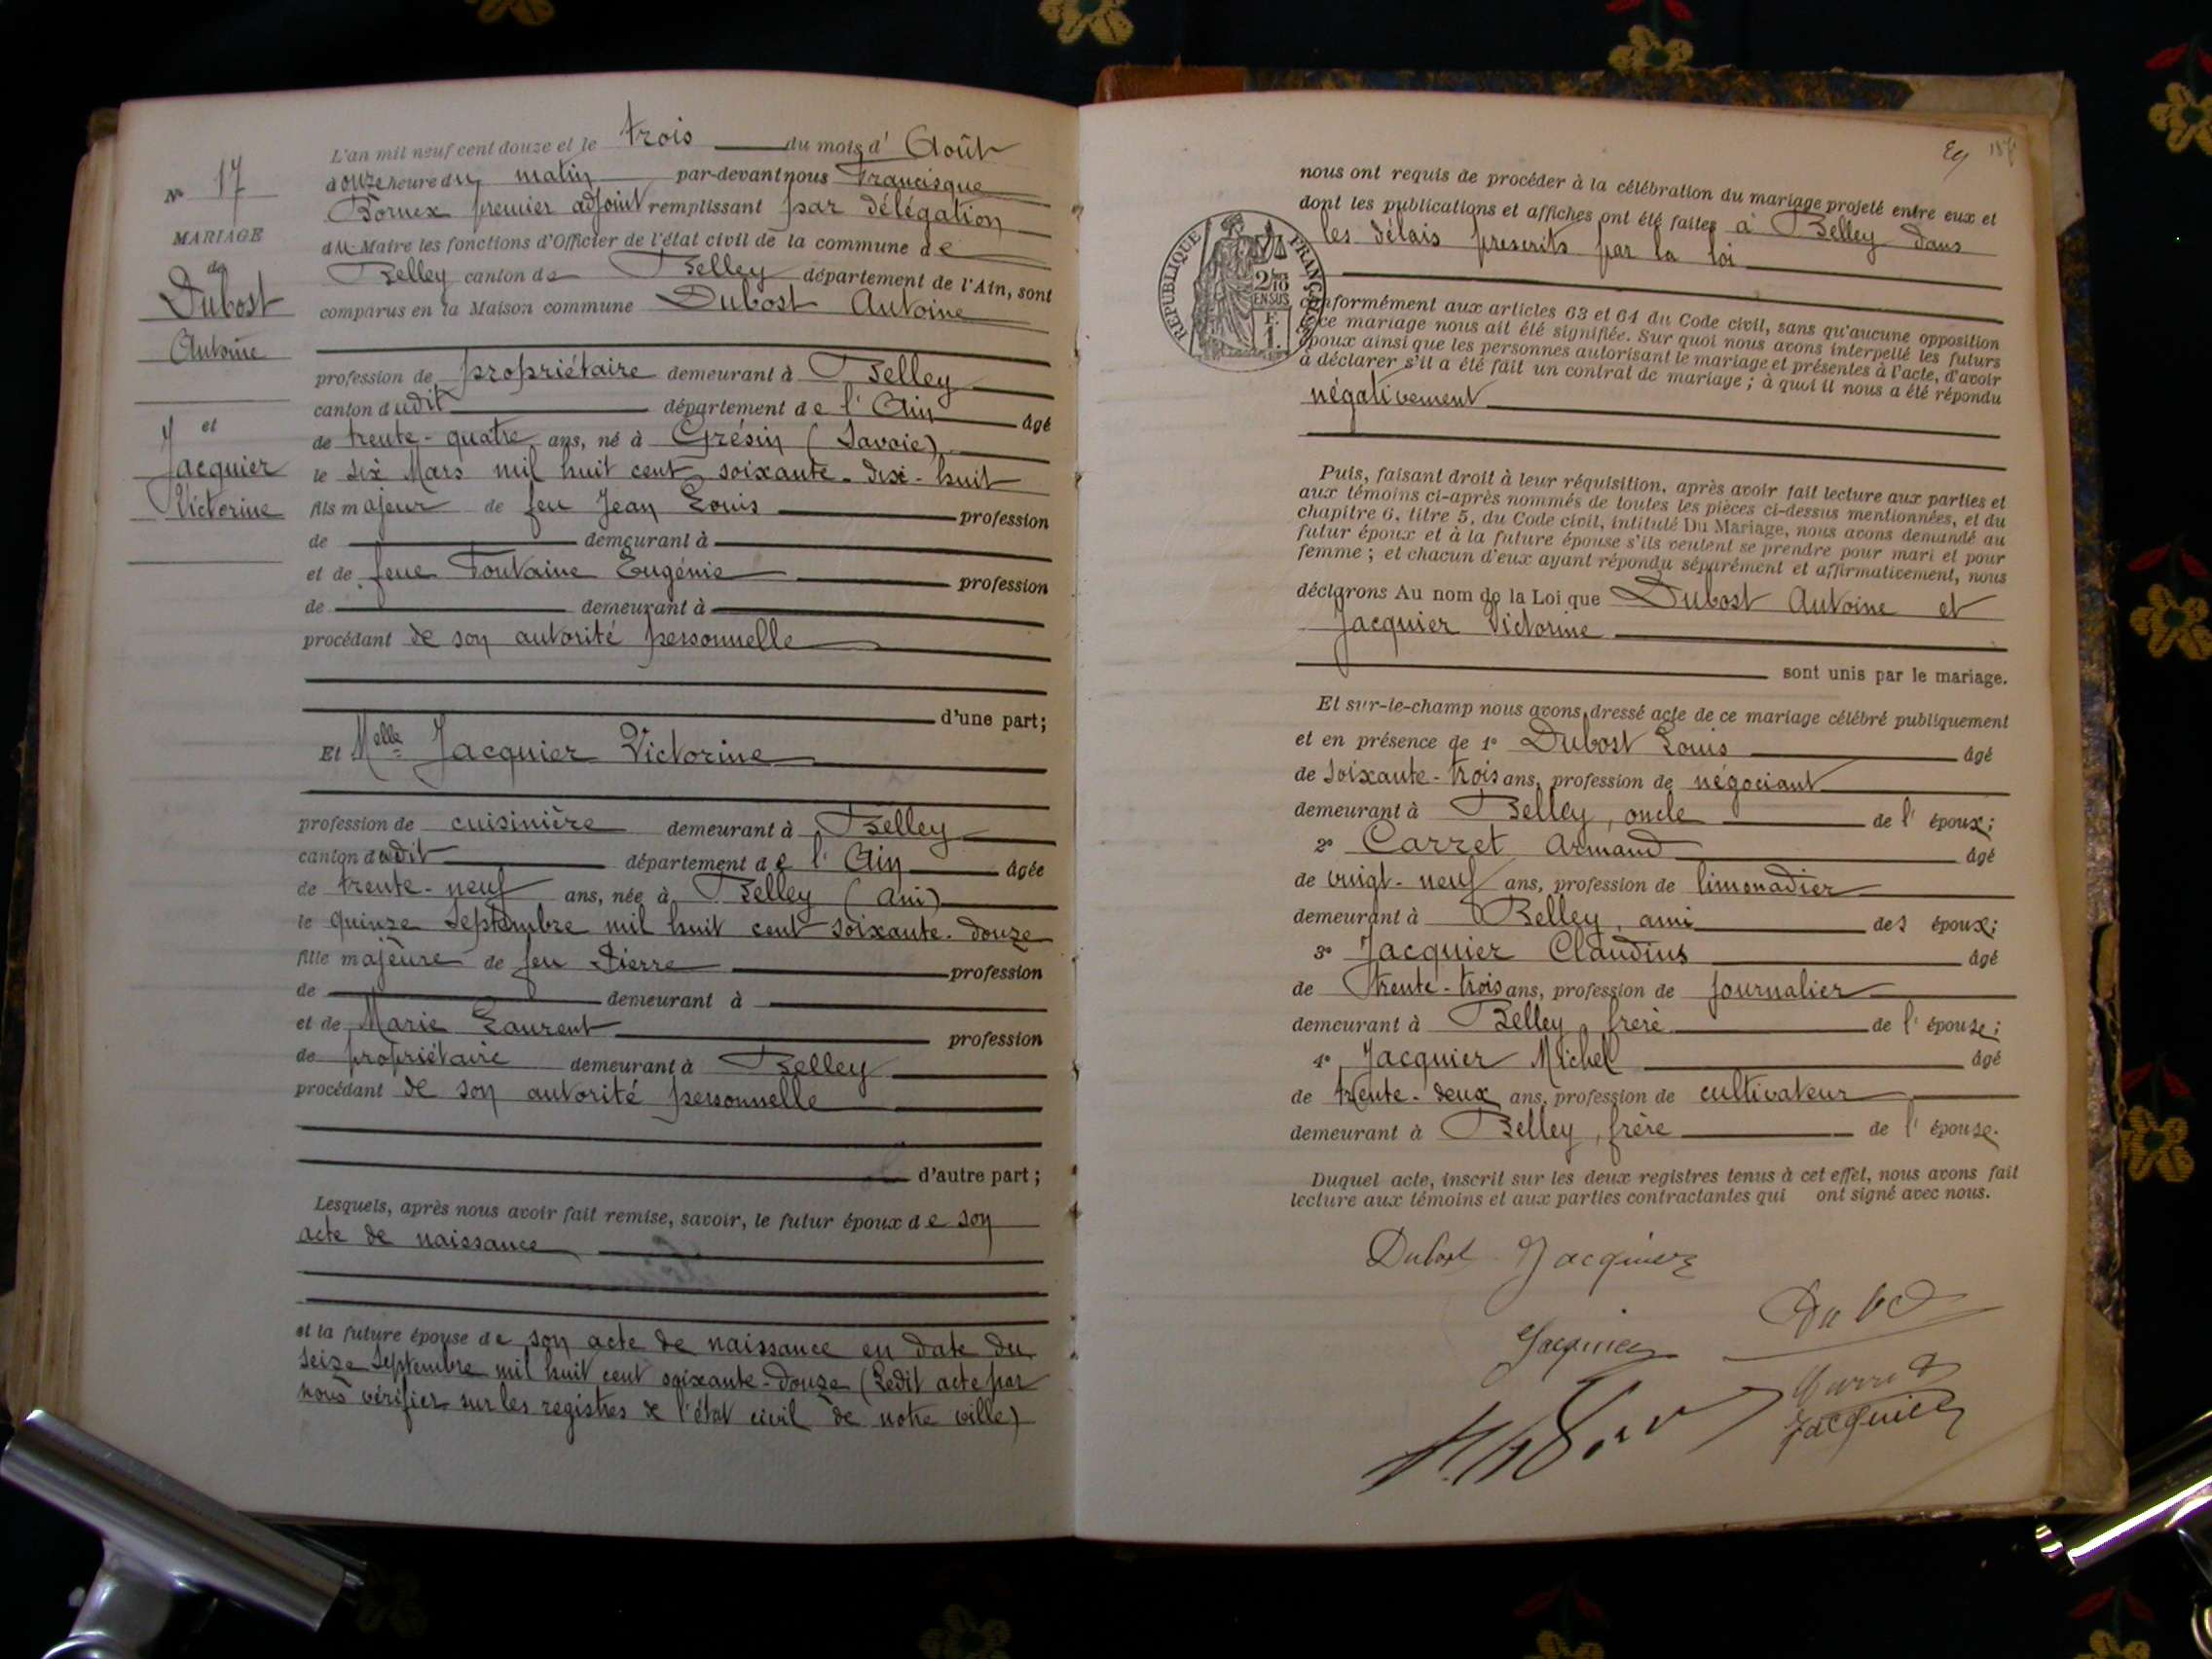 N° 17
MARIAGE
de
Dubost
Antoine
et
Jacquier
Victorine
L'an mil neuf cent douze et le trois du mois d' Août
douze heure du matin par-devant nous Francisque
Fornex premier adjoint remplissant par délégation
du Maire les fonctions d'Officier de l'état civil de la commune de
Belley canton de Belley département de l'Ain, sont
comparus en la Maison commune Dubost Antoine
profession de propriétaire demeurant à Belley
canton dudit département de l'Ain âgé
de trente-quatre ans, né à Grésin (Savoie)
le six Mars mil huit cent soixante-dix-huit
fils majeur de feu Jean Louis profession
de demeurant à
et de feue Fontaine Eugénie profession
de demeurant à
procédant de son autorité personnelle
d'une part;
Et Melle Jacquier Victorine
profession de cuisinière demeurant à Belley
canton dudit département de l'Ain âgée
de trente-neuf ans, née à Belley (Ain)
le quinze Septembre mil huit cent soixante-douze
fille majeure de feu Pierre profession
de demeurant à
et de Marie Laurent profession
de propriétaire demeurant à Belley
procédant de son autorité personnelle
d'autre part;
Lesquels, après nous avoir fait remise, savoir, le futur époux de son
acte de naissance
et la future épouse de son acte de naissance en date du
seize Septembre mil huit cent soixante-douze (Ledit acte par
nous vérifier sur les registres de l'état civil de notre ville)
nous ont requis de procéder à la célébration du mariage projeté entre eux et
dont les publications et affiches ont été faites à Belley dans
les délais prescrits par la loi
RÉPUBLIQUE FRANÇAISE
2/10
EN SUS
F.
1.
conformément aux articles 63 et 64 du Code civil, sans qu'aucune opposition
à ce mariage nous ait été signifiée. Sur quoi nous avons interpellé les futurs
époux ainsi que les personnes autorisant le mariage et présentes à l'acte, d'avoir
à déclarer s'il a été fait un contrat de mariage; à quoi il nous a été répondu
négativement
Puis, faisant droit à leur réquisition, après avoir fait lecture aux parties et
aux témoins ci-après nommés de toutes les pièces ci-dessus mentionnées, et du
chapitre 6, titre 5, du Code civil, intitulé Du Mariage, nous avons demandé au
futur époux et à la future épouse s'ils veulent se prendre pour mari et pour
femme; et chacun d'eux ayant répondu séparément et affirmativement, nous
déclarons Au nom de la Loi que Dubost Antoine et
Jacquier Victorine
sont unis par le mariage.
Et sur-le-champ nous avons dressé acte de ce mariage célébré publiquement
et en présence de 1° Dubost Louis âgé
de soixante-trois ans, profession de négociant
demeurant à Belley, oncle de l' époux;
2° Carret Armand âgé
de vingt-neuf ans, profession de limonadier
demeurant à Belley, ami des époux;
3° Jacquier Claudius âgé
de trente-trois ans, profession de journalier
demeurant à Belley, frère de l' épouse;
4° Jacquier Michel âgé
de trente-deux ans, profession de cultivateur
demeurant à Belley, frère de l' épouse.
Duquel acte, inscrit sur les deux registres tenus à cet effet, nous avons fait
lecture aux témoins et aux parties contractantes qui ont signé avec nous.
Dubost Jacquier
Jacquier
Jacquier